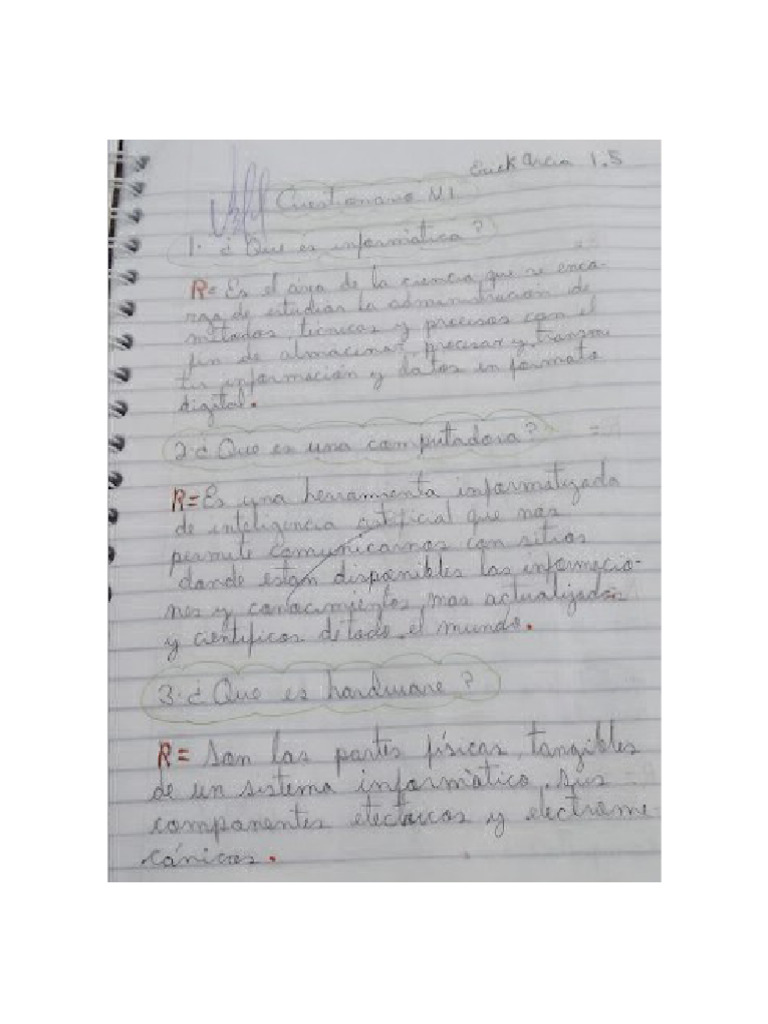 Erick Arcia 1.5
Cuestionario N1
1. ¿ Que es informática?
R= Es el area de la ciencia que se enca-
rga de estudiar la administración de
métodos, técnicas y procesos con el
fin de almacenar, procesar y transmi
tir información y datos en formato
digital.
2. ¿ Que es una computadora?
R= Es una herramienta informatizada
de inteligencia artificial que nos
permite comunicarnos con sitios
donde estan disponibles las informacio-
nes y conocimientos, mas actualizados
y cientificos de todo el mundo.
3. ¿ Que es hardware?
R= Son las partes físicas, tangibles
de un sistema informático, sus
componentes electricos y electrome-
cánicos.